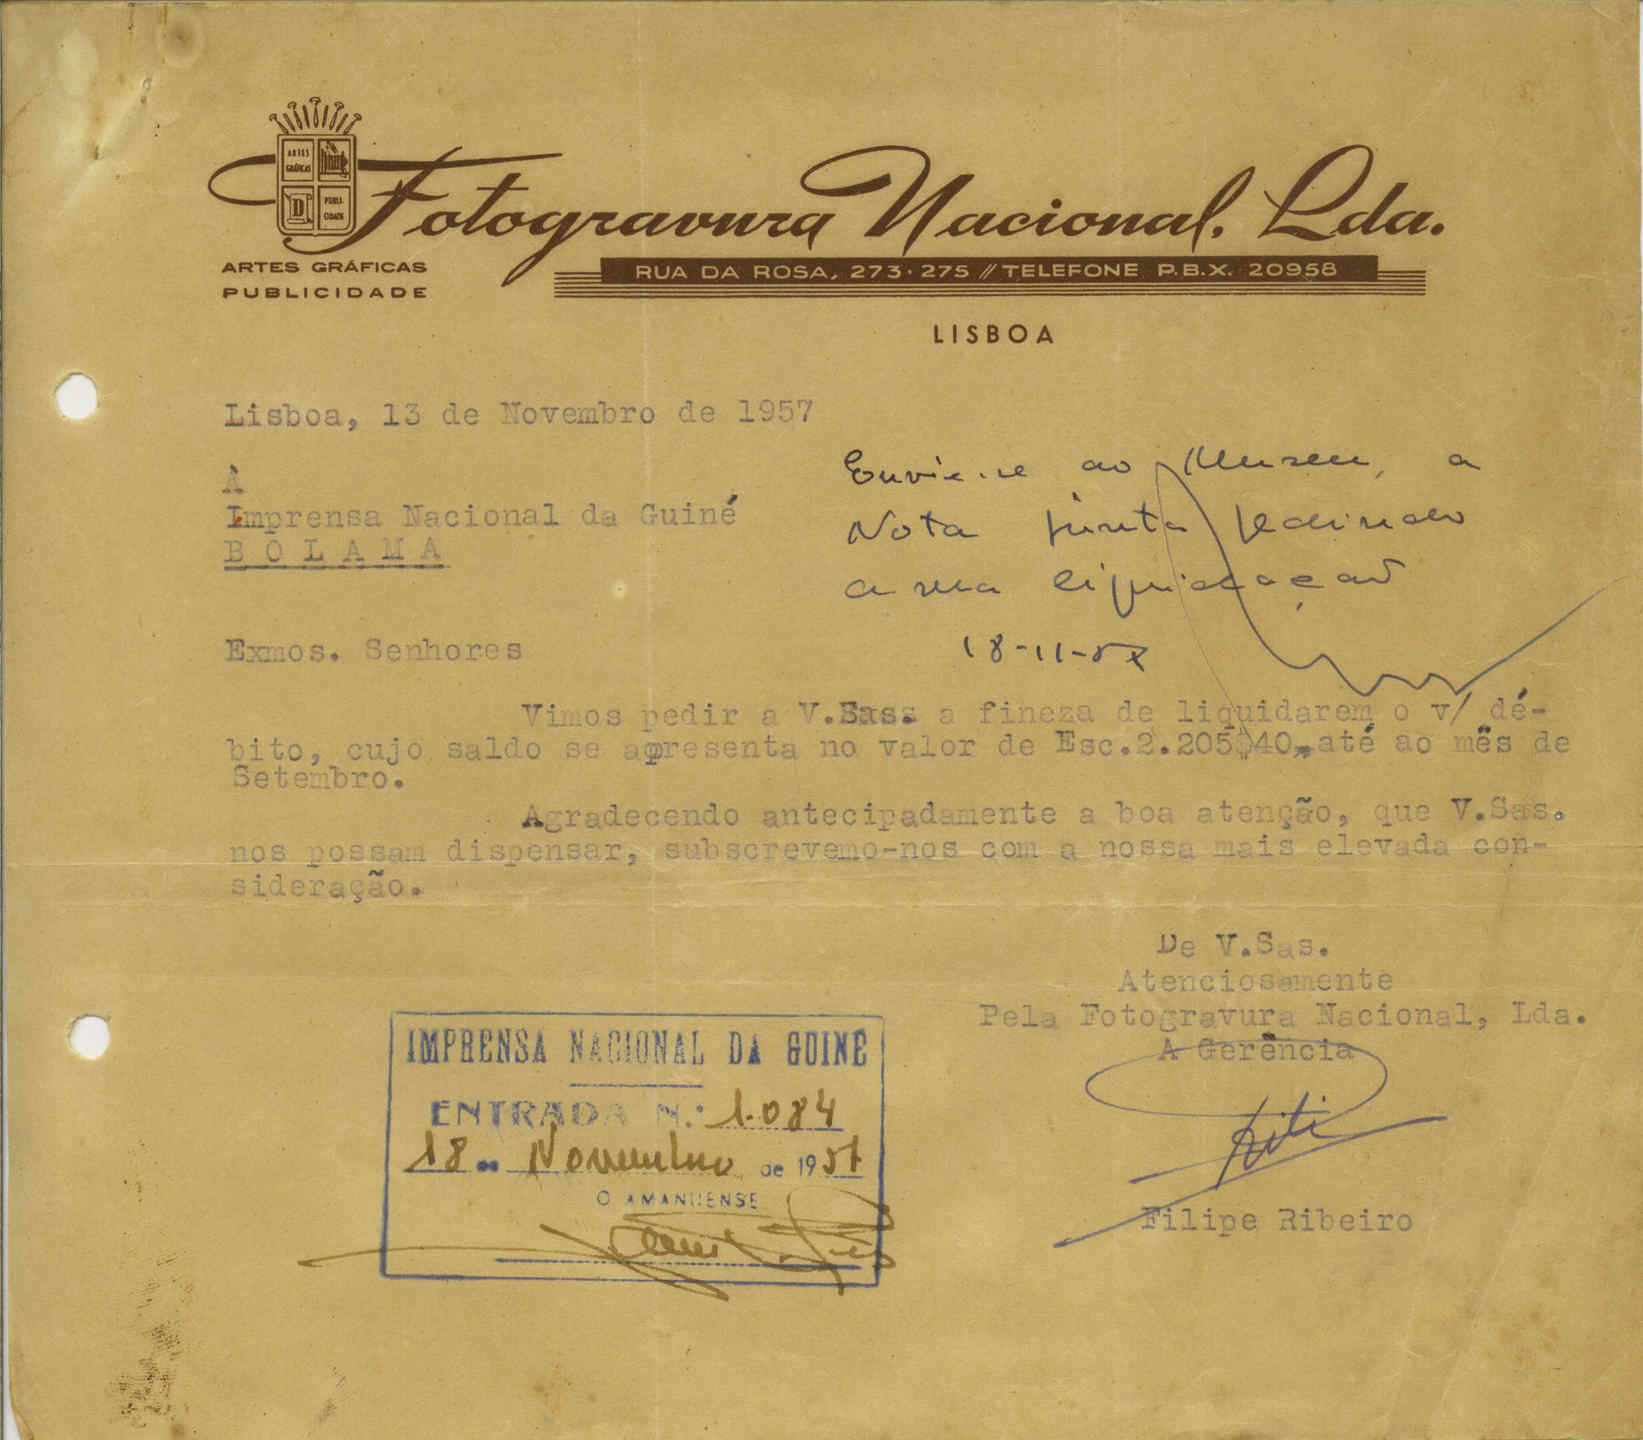 ARTES
GRÁFICAS
D
PUBLI-
CIDADE
Fotogravura Nacional, Lda.
ARTES GRÁFICAS
PUBLICIDADE
RUA DA ROSA, 273·275 // TELEFONE P.B.X. 20958
LISBOA
Lisboa, 13 de Novembro de 1957
À
Imprensa Nacional da Guiné
B O L A M A
Envie-se ao Museu, a
Nota junta pedindo
a sua liquidação
18-11-57
Exmos. Senhores
Vimos pedir a V.Sas. a fineza de liquidarem o v/ dé-
bito, cujo saldo se apresenta no valor de Esc.2.205$40, até ao mês de
Setembro.
Agradecendo antecipadamente a boa atenção, que V.Sas.
nos possam dispensar, subscrevemo-nos com a nossa mais elevada con-
sideração.
De V.Sas.
Atenciosamente
Pela Fotogravura Nacional, Lda.
A Gerência
Filipe Ribeiro
IMPRENSA NACIONAL DA GUINÉ
ENTRADA N.: 1.084
18 de Novembro de 1957
O AMANUENSE